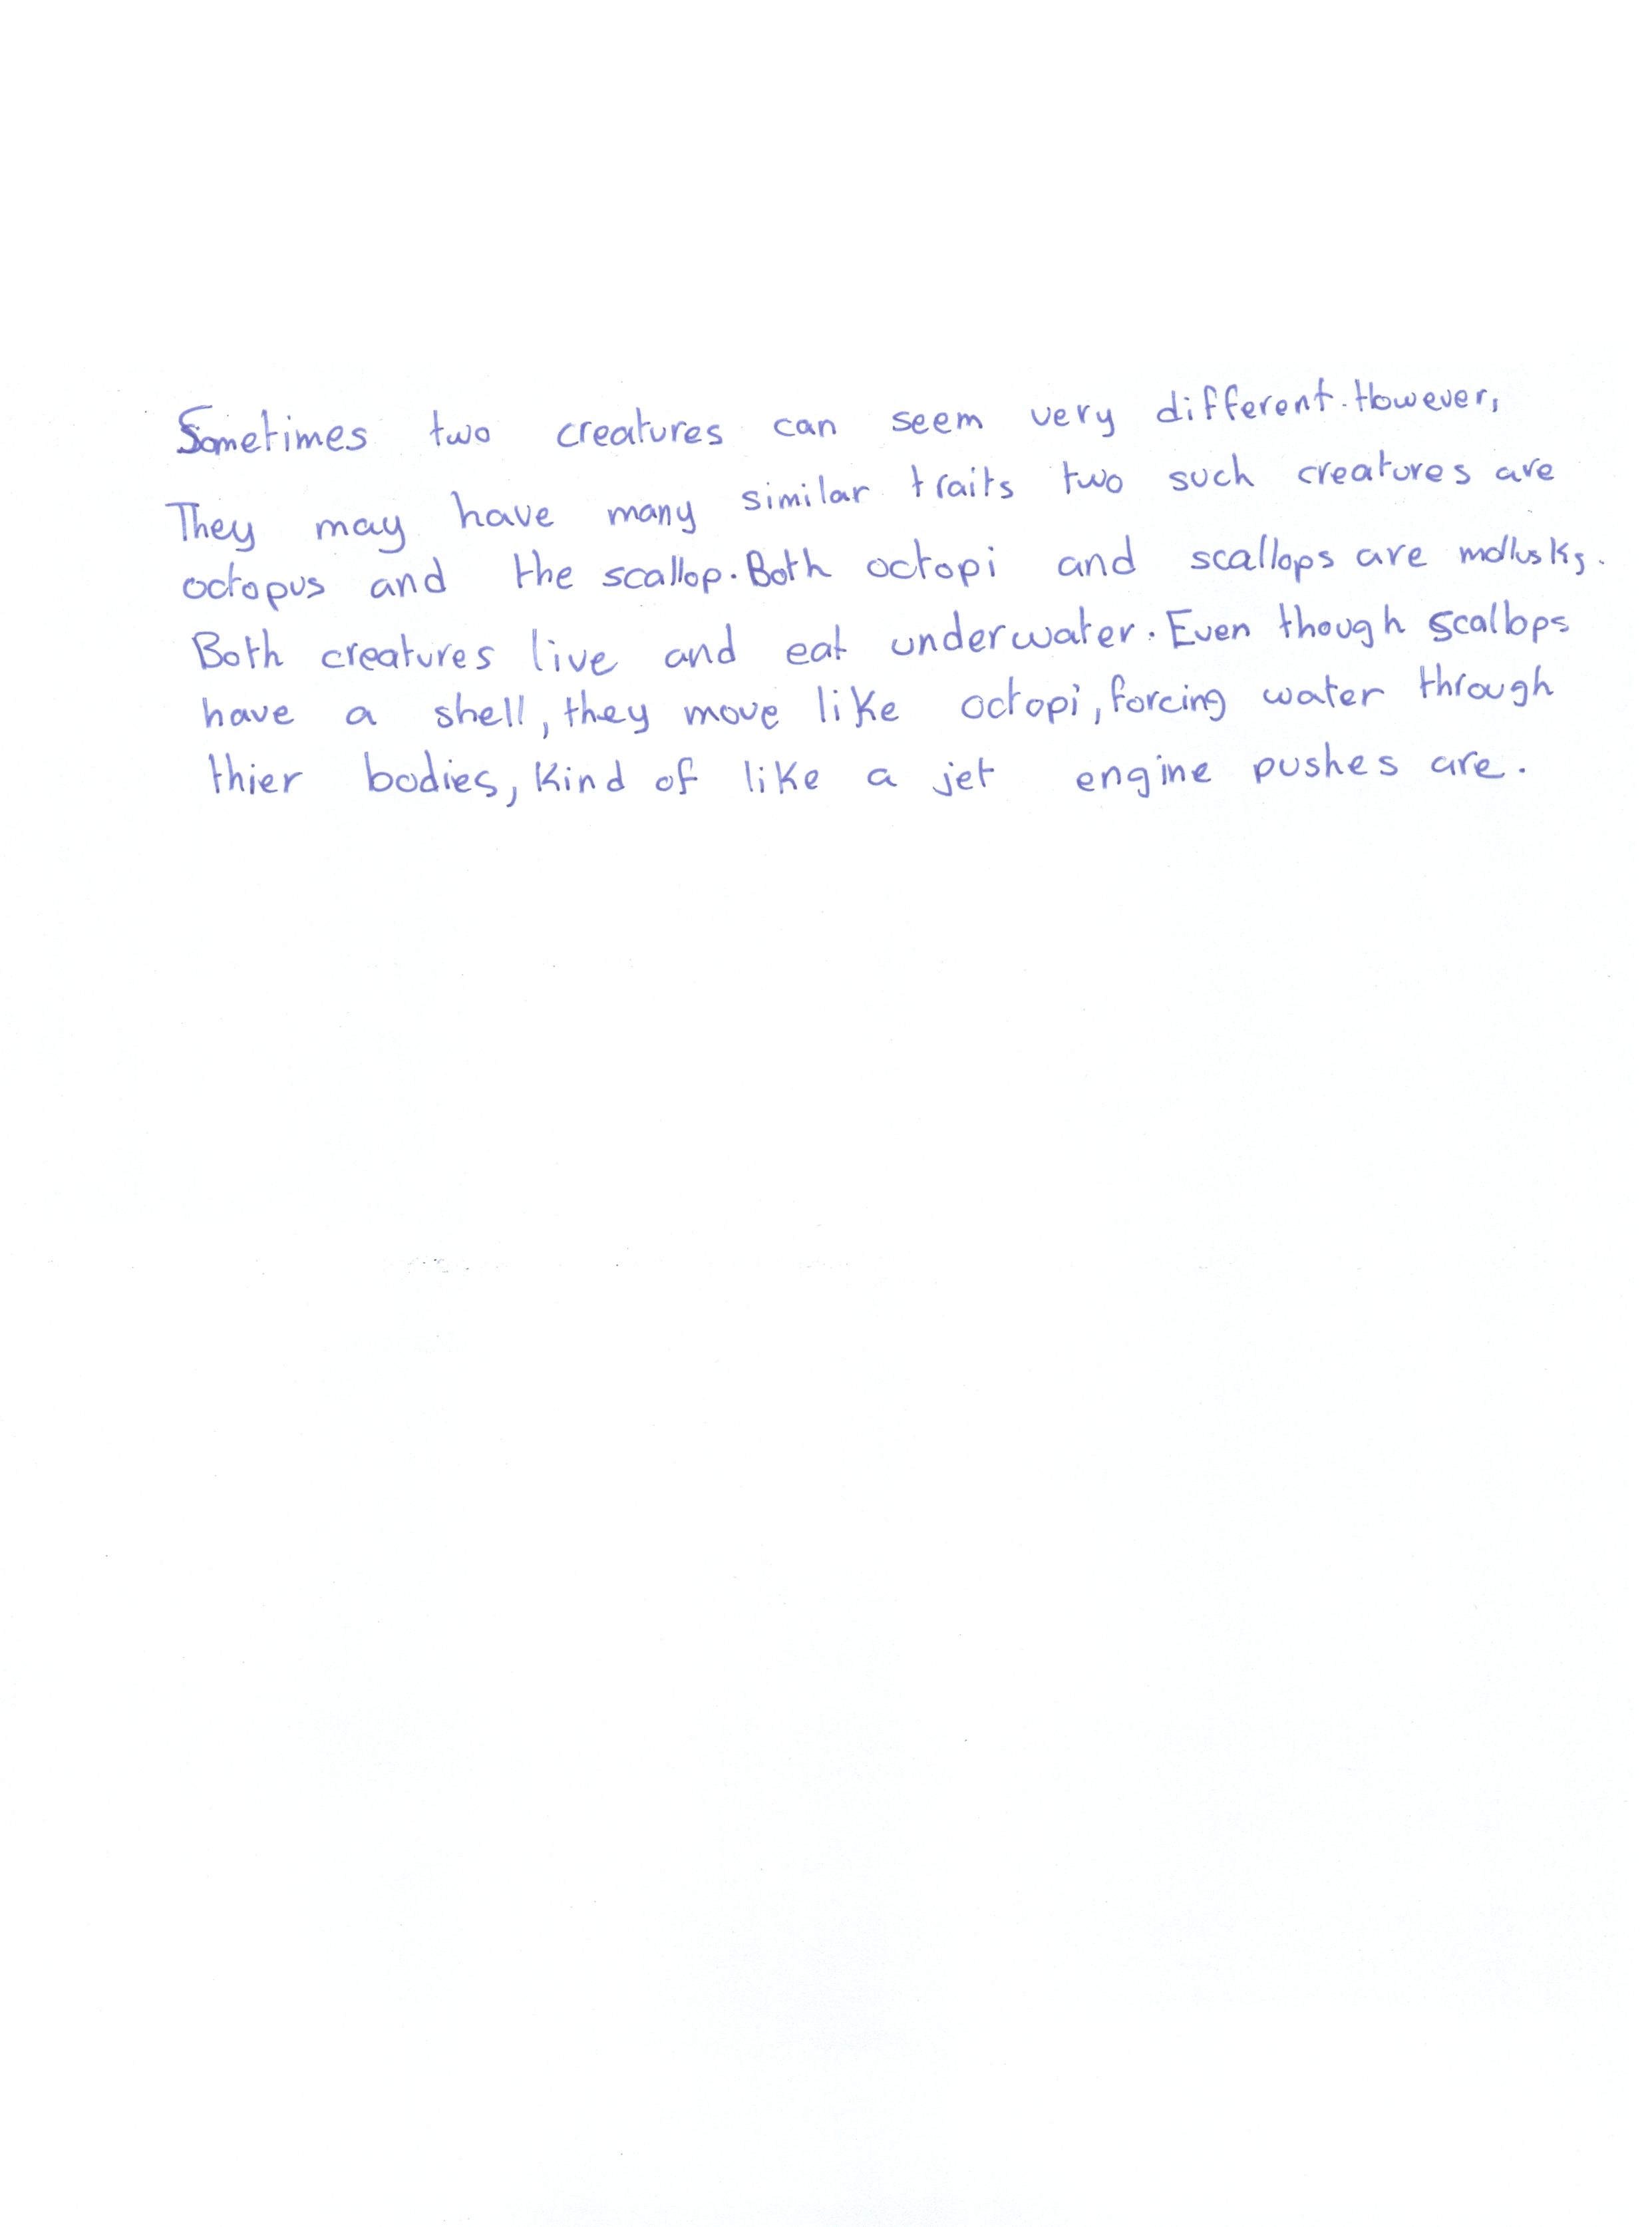 Sometimes two creatures can seem very different. However,
They may have many similar traits two such creatures are
octopus and the scallop. Both octopi and scallops are mollusks.
Both creatures live and eat underwater. Even though scallops
have a shell, they move like octopi, forcing water through
thier bodies, kind of like a jet engine pushes are.